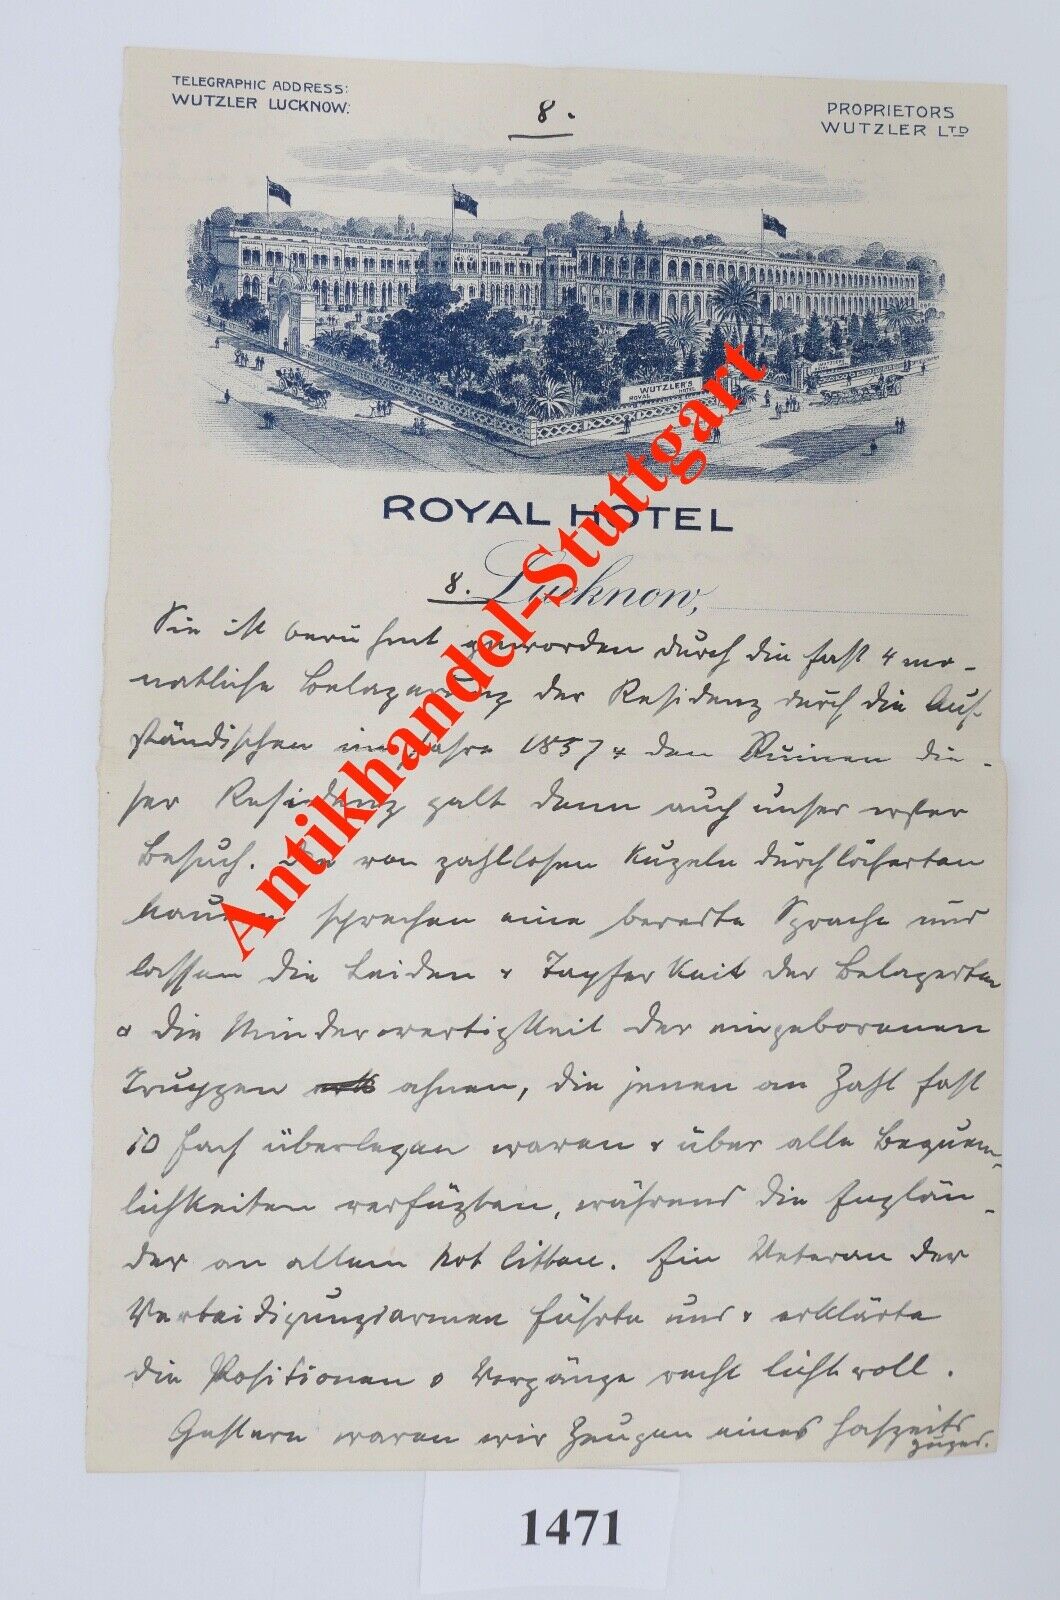 TELEGRAPHIC ADDRESS:
WUTZLER LUCKNOW.
8.
PROPRIETORS
WUTZLER LTD
WUTZLER'S
ROYAL HOTEL
ROYAL HOTEL
8. Lucknow,
Sie ist berühmt geworden durch die fast 4 mo-
natliche Belagerung der Residenz durch die Auf-
ständischen im Jahre 1857 & den Ruinen die-
ser Residenz galt denn auch unser erster
Besuch. Die von zahllosen Kugeln durchlöcherten
Mauern sprechen eine beredte Sprache und
lassen die Leiden & Tapferkeit der Belagerten
& die Minderwertigkeit der eingeborenen
Truppen ahnen, die jenen an Zahl fast
10 fach überlegen waren & über alle Bequem-
lichkeiten verfügten, während die Englän-
der an allem Not litten. Ein Veteran der
Verteidigungsarmee führte uns & erklärte
die Positionen & Vorgänge recht lichtvoll.
Gestern waren wir Zeugen eines Hochzeits
zuges.
Antikhandel-Stuttgart
1471